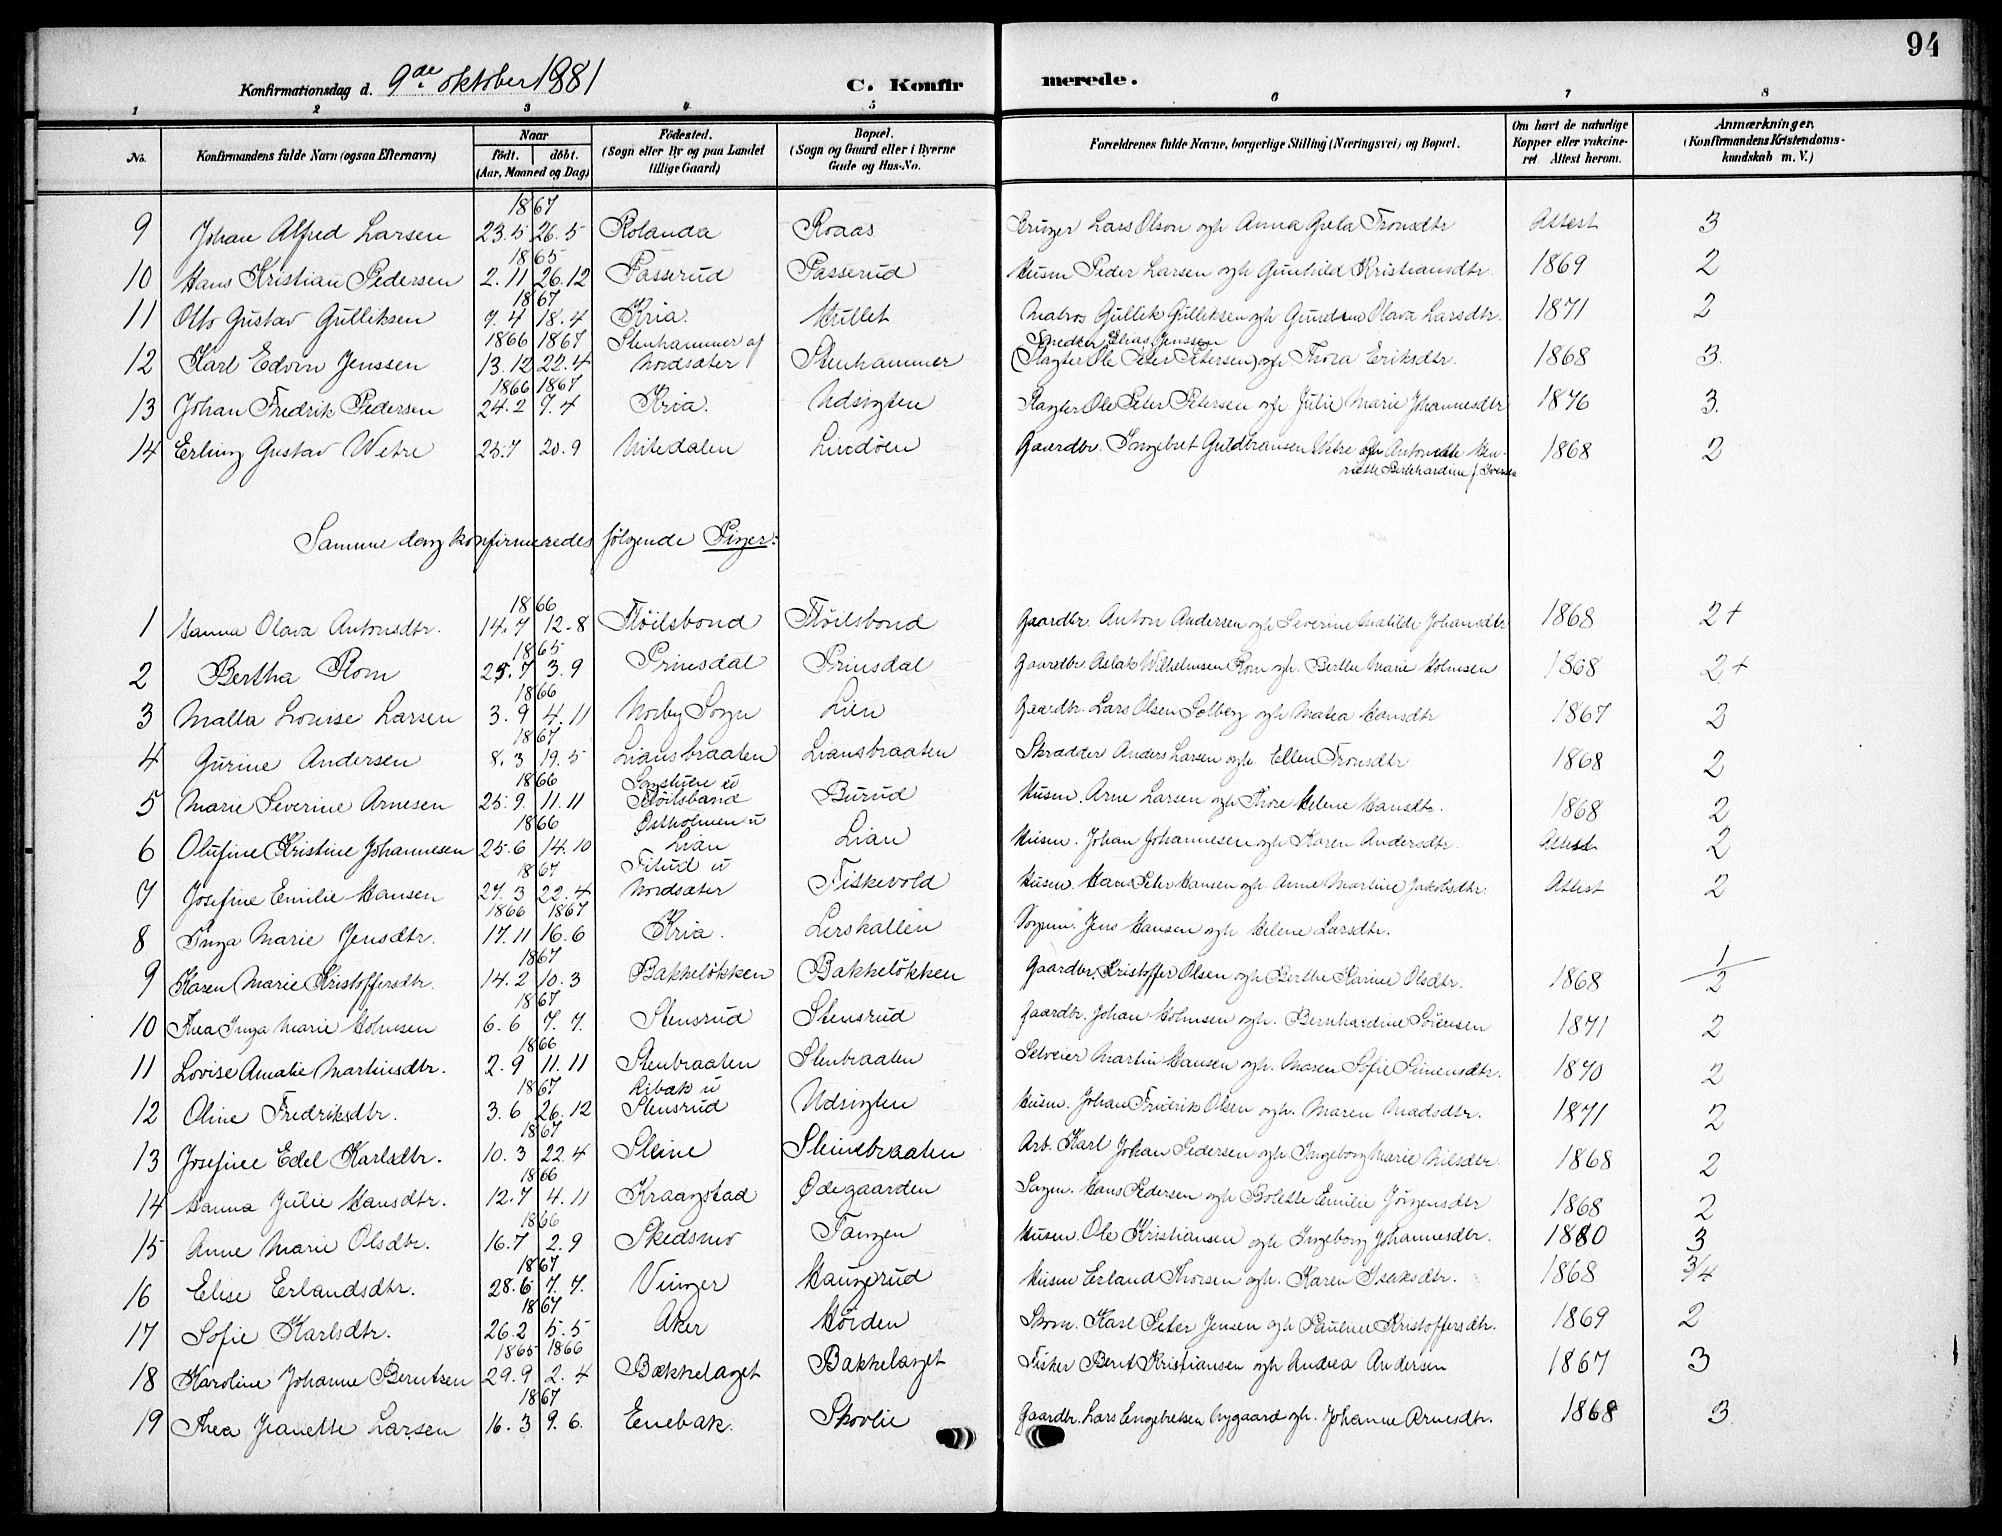 94
Konfirmationsdag d. 9de oktober 1881 C. Konfirmerede.
1 2 3 4 5 6 7 8
No. Konfirmandens fulde Navn (ogsaa Efternavn) Naar födt. döbt. (Aar, Maaned og Dag) Födested. (Sogn eller By og paa Landet tillige Gaard) Bopæl. (Sogn og Gaard eller i Byerne Gade og Hus-No. Forældrenes fulde Navne, borgerlige Stilling (Næringsvei) og Bopæl. Om havt de naturlige Kopper eller vakcineret. Attest herom. Anmærkninger. (Konfirmandens Kristendomskundskab m. V.)
1867
9 Johan Alfred Larsen 23.5 26.5 Rolanda Roaas Lars Olson ogh Anna Greta Tronsdtr Attest 3
1865
10 Hans Kristian Pedersen 2.11 26.12 Passerud Passerud Husm Peder Larsen ogh Gunhild Kristiansdtr. 1869 2
1867
11 Otto Gustav Gulliksen 7.4 18.4 Kria. Hullet Matros Gullik Gulliksen ogh Olava Larsdtr. 1871 2
1866 1867 Stenhammer af Smeden Elias Jenssen
12 Karl Edvin Jenssen 13.12 22.4 Nordsæter Stenhammer (Slagter Ole Peter Petersen) ogh Thora Eriksdtr. 1868 3.
1866 1867
13 Johan Fredrik Pedersen 24.2 7.4 Kria. Udsigten Slagter Ole Peter Petersen ogh Julie Marie Johannesdtr 1876 3.
14 Erling Gustav Wetre 25.7 20.9 Nitedalen Lindöen Gaardbr. Ingebret Guldbransen Wetre ogh Antonette Hen-
riette Bernhardine f. Iversen 1868 2
Samme dag konfirmeredes følgende Piger:
1866
1 Hanna Olava Antonsdtr. 14.7 12.8 Flöilsbond Flöilsbond Gaardbr. Anton Andersen ogh Severine Matilde Johansdtr 1868 2+
1865
2 Bertha Rom 25.7 3.9 Prinsdal Prinsdal Gaardbr. Aslak Wilhelmsen Rom ogh. Berthe Marie Holmsen 1868 2+
1866
3 Malla Lovise Larsen 3.9 4.11 Norby Sogn Lien Gaardbr. Lars Olsen Solberg ogh Matea Hansdtr 1867 2
1867
4 Gurine Andersen 8.3 19.5 Liansbraaten Liansbraaten Skrædder Anders Larsen ogh. Ellen Tronsdtr 1868 2
1866 u
5 Marie Severine Arnesen 25.9 11.11 Flöilsband Burud Husm. Arne Larsen ogh Thore Helene Hansdtr. 1868 2
1866 Østholmen u
6 Olufine Kristine Johannesen 25.6 14.10 Lian Lian Husm. Johan Johannesen ogh Karen Andersdtr. Attest 2
1867 u
7 Josefine Emilie Hansen 27.3 22.4 Nordsæter Fiskevold Husm. Hans Peter Hansen ogh. Anne Martine Jakobsdtr. Attest 2
1866 1867
8 Inga Marie Jensdtr. 17.11 16.6 Kria. Lerskallen Jens Hansen ogh Helene Larsdtr.
1867
9 Karen Marie Kristoffersdtr. 14.2 10.3 Bakkelökken Bakkelökken Gaardbr. Kristoffer Olsen ogh Berthe Karine Olsdtr. 1868 1/2
1867
10 Thea Inga Marie Holmsen 6.6 7.7. Stensrud Stensrud Gaardbr. Johan Holmsen ogh. Bernhardine Sörensen 1871 2
1866
11 Lovise Amalie Martinsdtr. 2.9 11.11 Stenbraaten Stenbraaten Selveier Martin Hansen ogh. Maren Sofie Simensdtr. 1870 2
1867 Ribak u
12 Oline Fredriksdtr. 3.6 26.12 Stensrud Udsigten Husm. Johan Fridrik Olsen ogh. Maren Madsdtr. 1871 2
1867
13 Josefine Edel Karlsdtr. 10.3 22.4 Sleine Sleinebraaten Arb. Karl Johan Pedersen ogh Ingeborg Marie Nilsdtr. 1868 2
1866
14 Hanna Julie Hansdtr. 12.7 4.11 Kraagstad Ødegaarden Hans Pedersen ogh Bolette Emilie Jörgensdtr 1868 2
1866
15 Anne Marie Olsdtr. 16.7 2.9 Skedsmo Tangen Husm. Ole Kristiansen ogh Ingeborg Johannesdtr. 1880 3
1867
16 Elise Erlandsdtr. 28.5 7.7. Vinger Haugerud Husm Erland Thorsen ogh. Karen Isaksdtr. 1868 3/4
1867
17 Sofie Karlsdtr. 26.2 5.5 Aker Hörden Skom. Karl Peter Jensen ogh Pauline Kristoffersdtr. 1869 2
1865 1866
18 Karoline Johanne Berntsen 29.9 2.4 Bækkelaget Bakkelaget Fisker Bernt Kristiansen ogh Andrea Andersen 1867 3
1867
19 Thea Jeanette Larsen 16.3 9.6. Enebak. Skovlie Gaardbr. Lars Engebretsen Nygaard ogh. Johanne Arnesdtr. 1868 3.